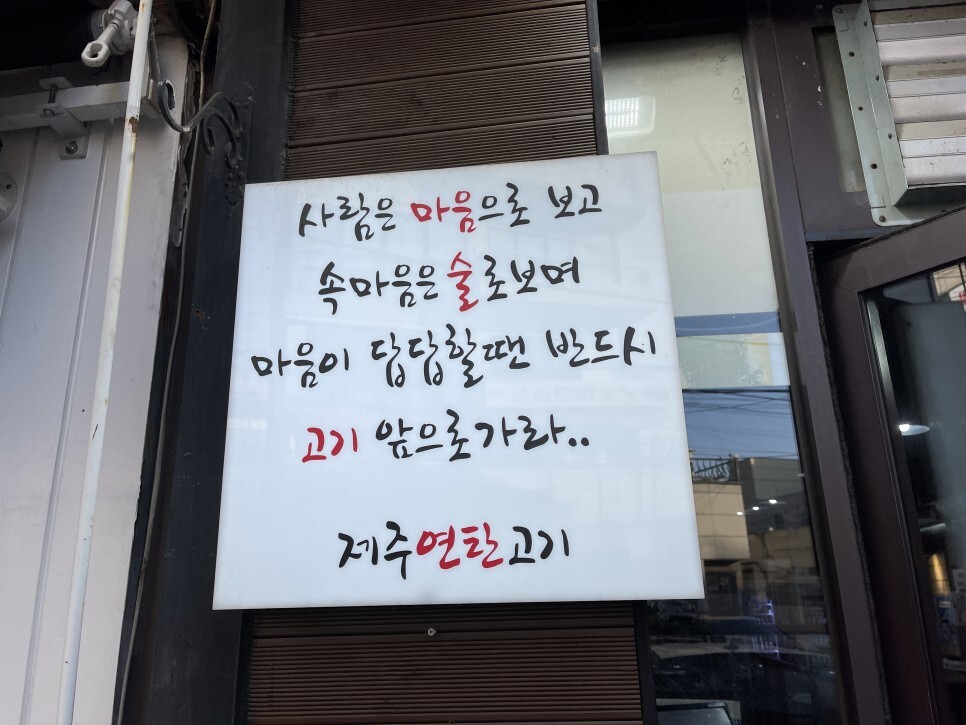 사람은 마음으로 보고
속마음은 술로보며
마음이 답답할땐 반드시
고기 앞으로가라..
제주연탄고기